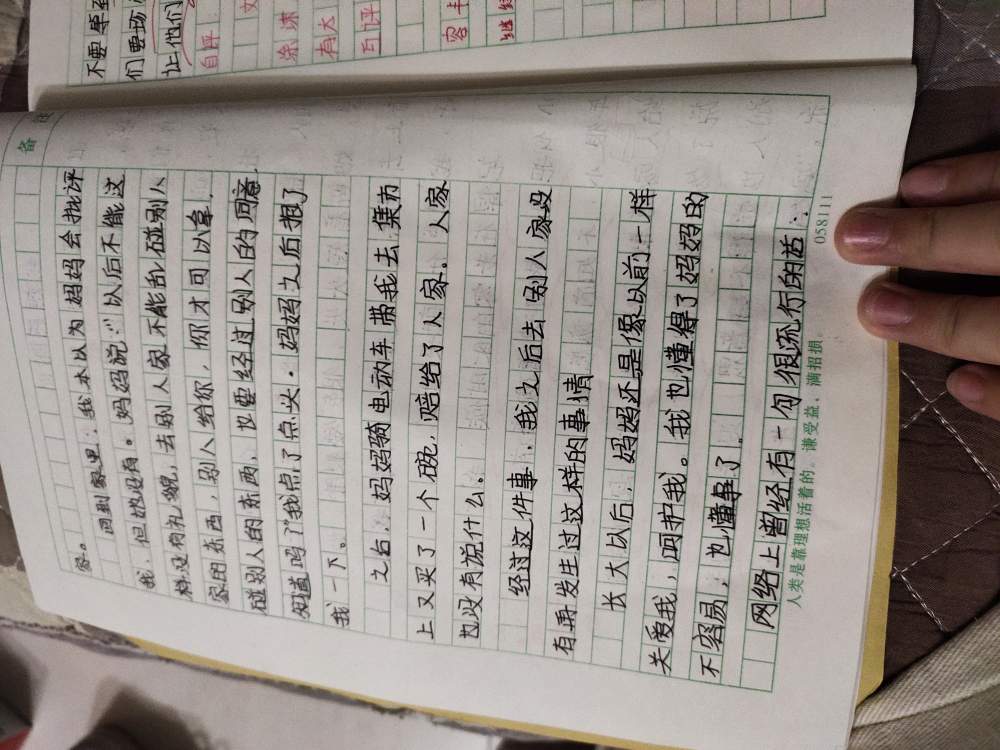 不要导至
们要场
让他们
自评
有大
互评
容卡
继续
备
客。
回到家里，我本以为妈妈会批评
我，但她没有。妈妈说：“以后不能这
样没有礼貌，去别人家不能乱碰别人
家的东西，别人给你，你才可以拿，
碰别人的东西，也要经过别人的同意，
知道吗？”我点了点头，妈妈之后抱了
我一下。
之后，妈妈骑电动车带我去集市
上又买了一个碗，赔给了人家。人家
也没有说什么。
经过这件事，我之后去别人家没
有再发生过这样的事情
长大以后，妈妈还是像以前一样
关爱我，呵护我。我也懂得了妈妈的
不容易，也懂事了。
网络上曾经有一句很流行的话：
人类是靠理想活着的。谦受益，满招损。
058111